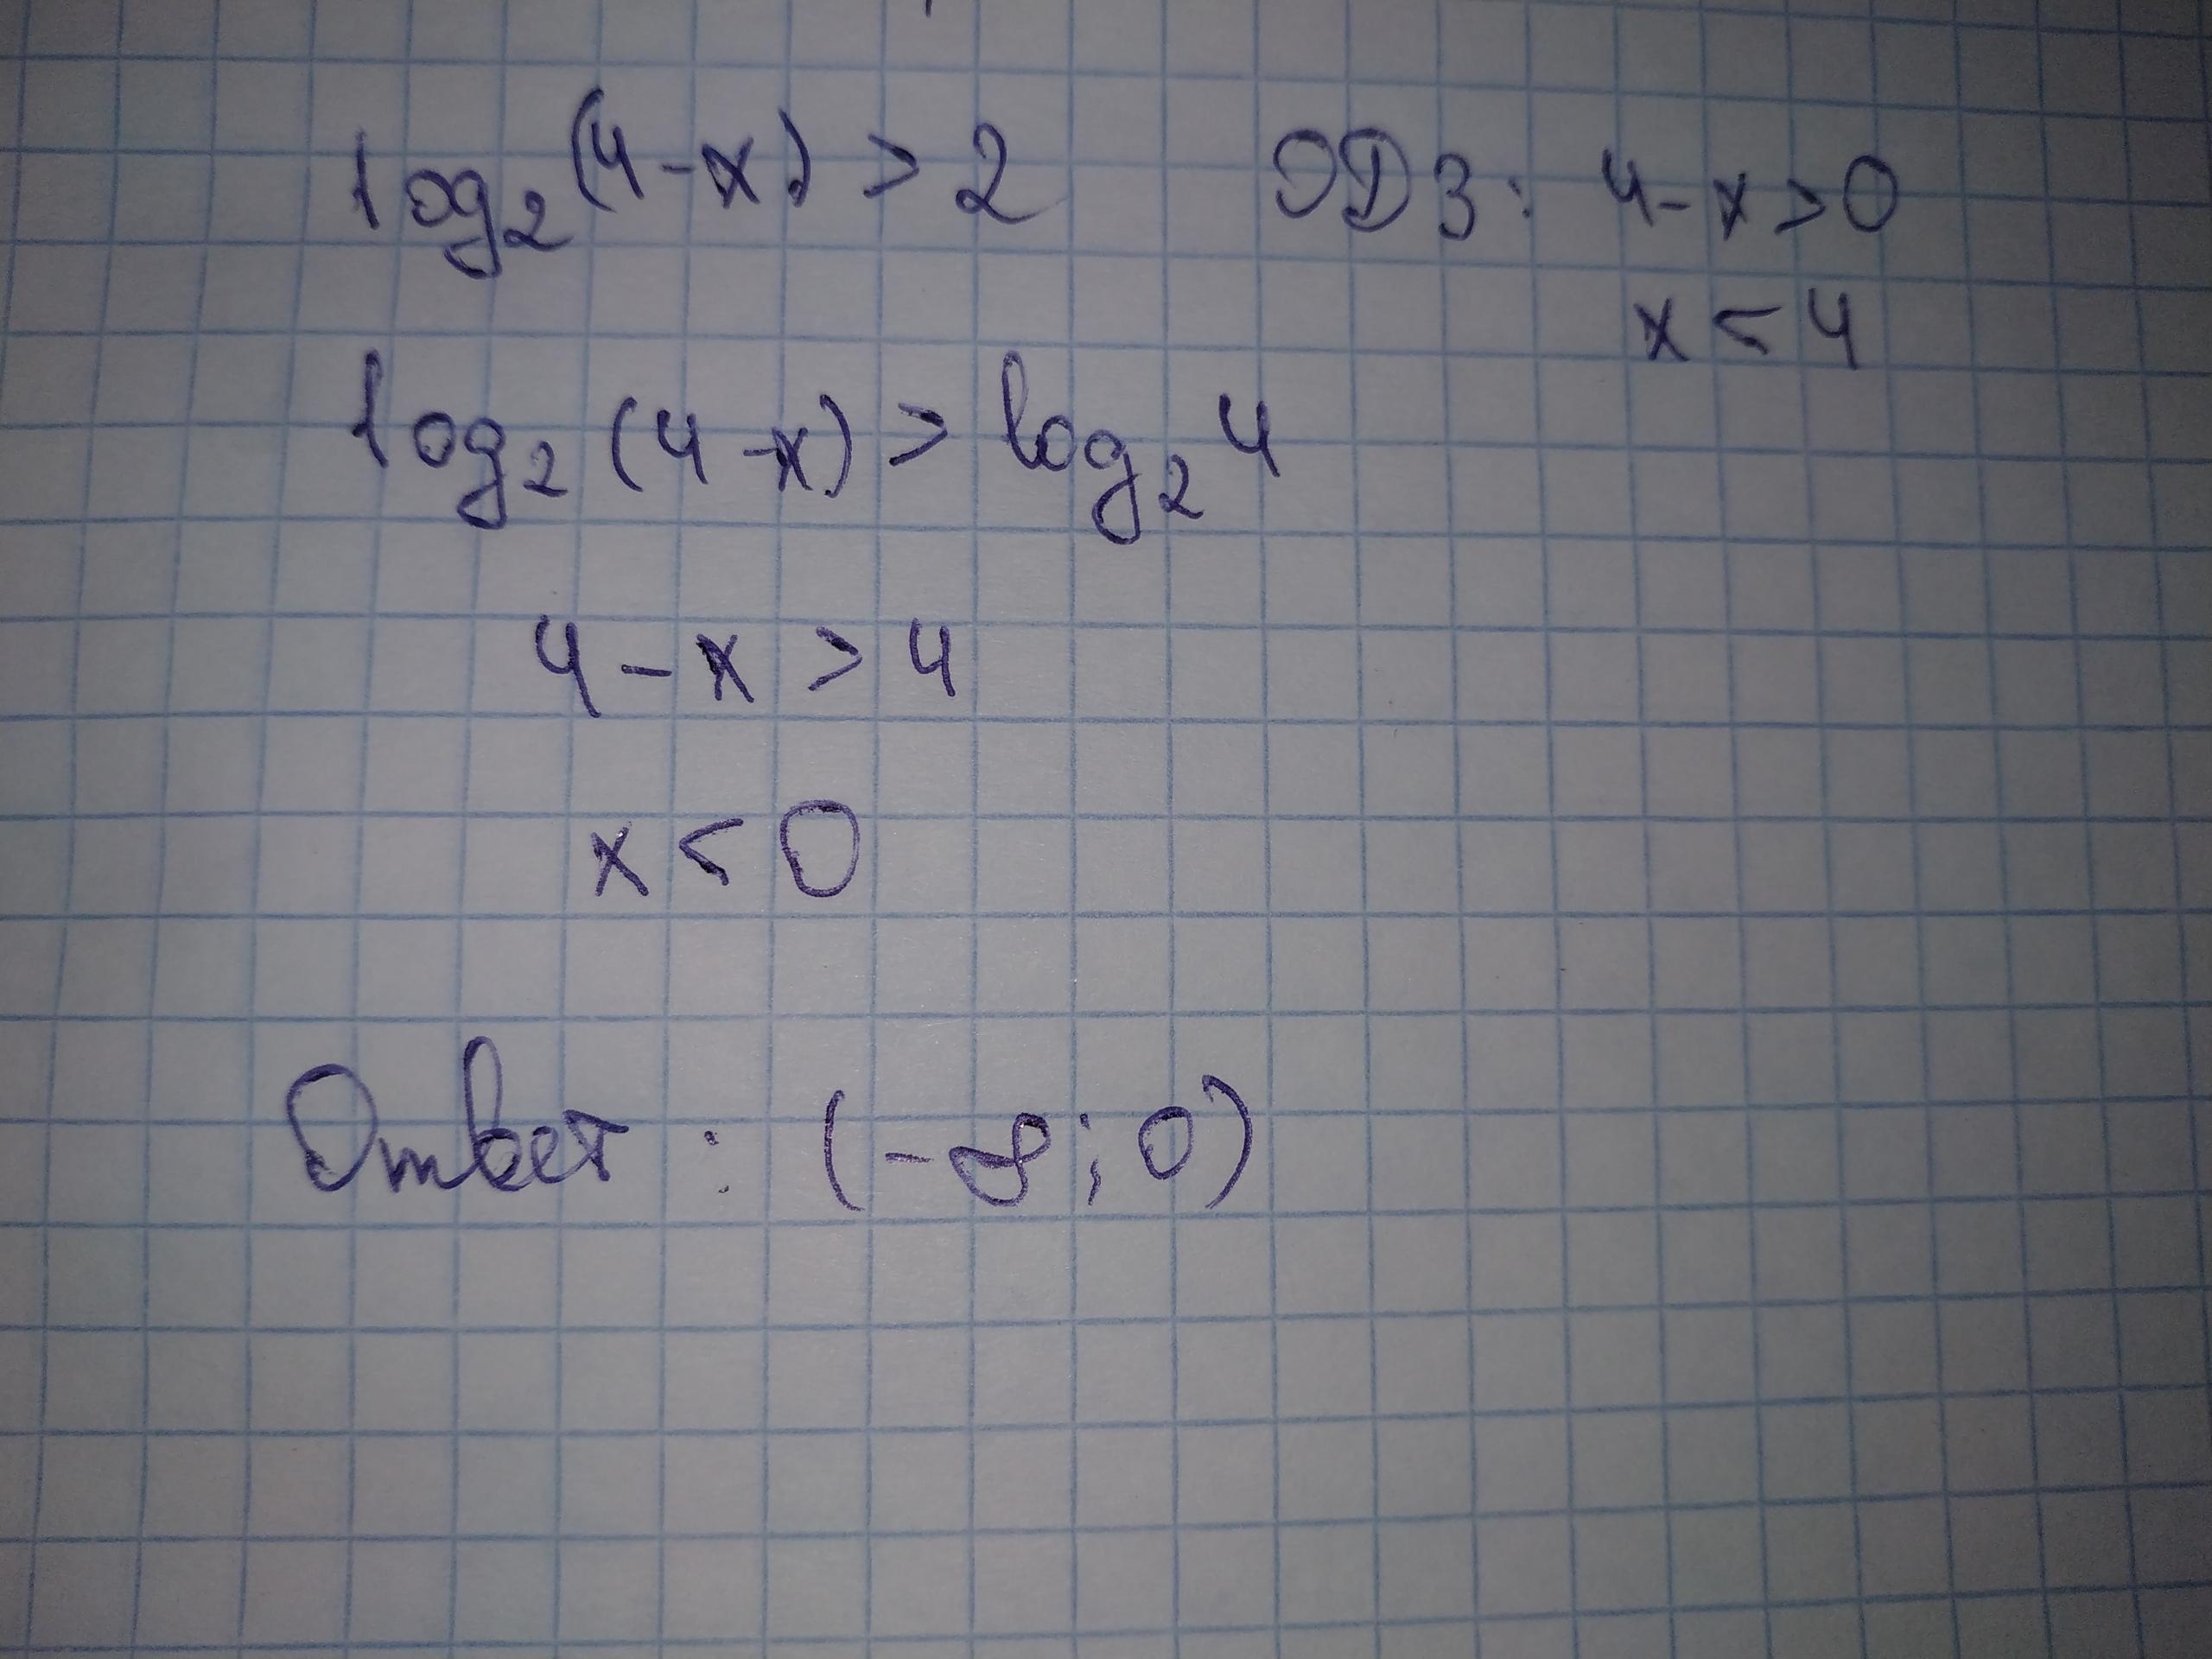 log₂(4-x) > 2 ОДЗ: 4-x>0
x < 4
log₂(4-x) > log₂4
4-x > 4
x < 0
Ответ: (-∞; 0)